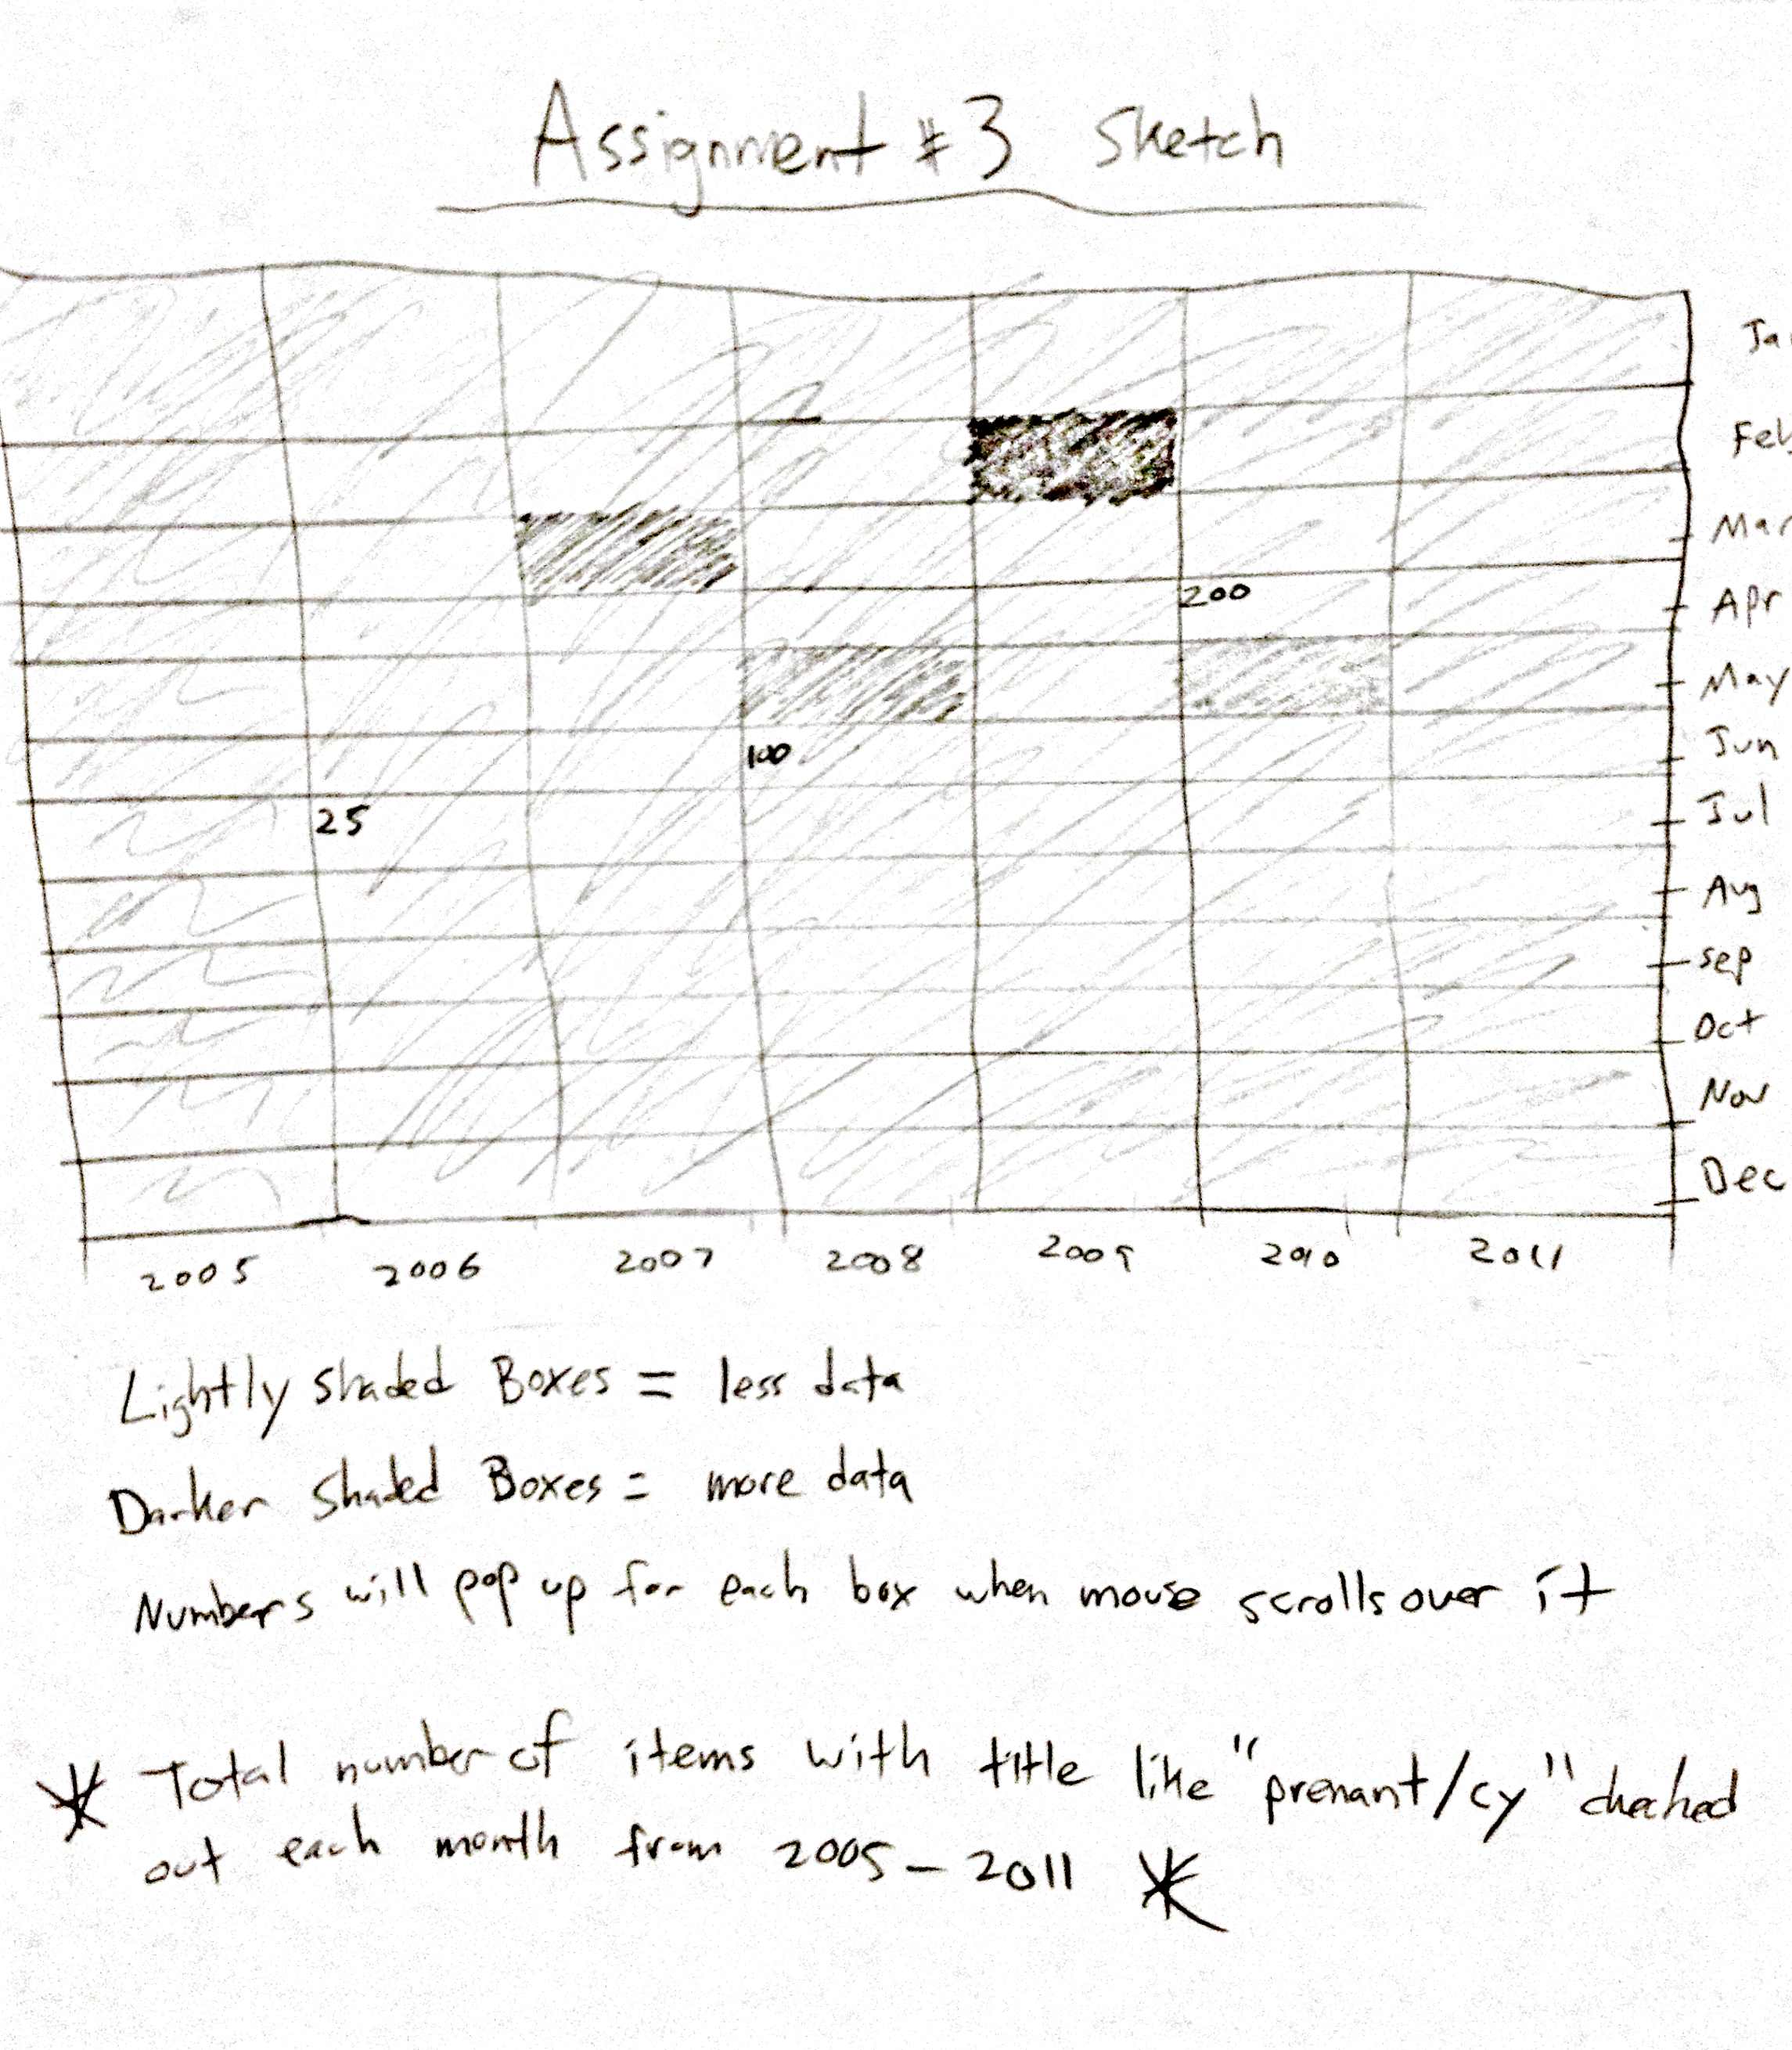 Assignment #3 Sketch
Ja
Feb
Mar
200
Apr
May
100
Jun
25
Jul
Aug
Sep
Oct
Nov
Dec
2005 2006 2007 2008 2009 2010 2011
Lightly Shaded Boxes = less data
Darker Shaded Boxes = more data
Numbers will pop up for each box when mouse scrolls over it
* Total number of items with title like "prenant/cy" checked
out each month from 2005 - 2011 *